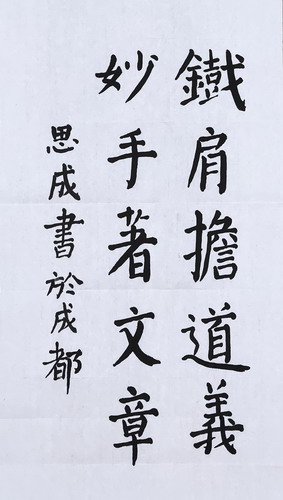 鐵肩擔道義
妙手著文章
思成書於成都